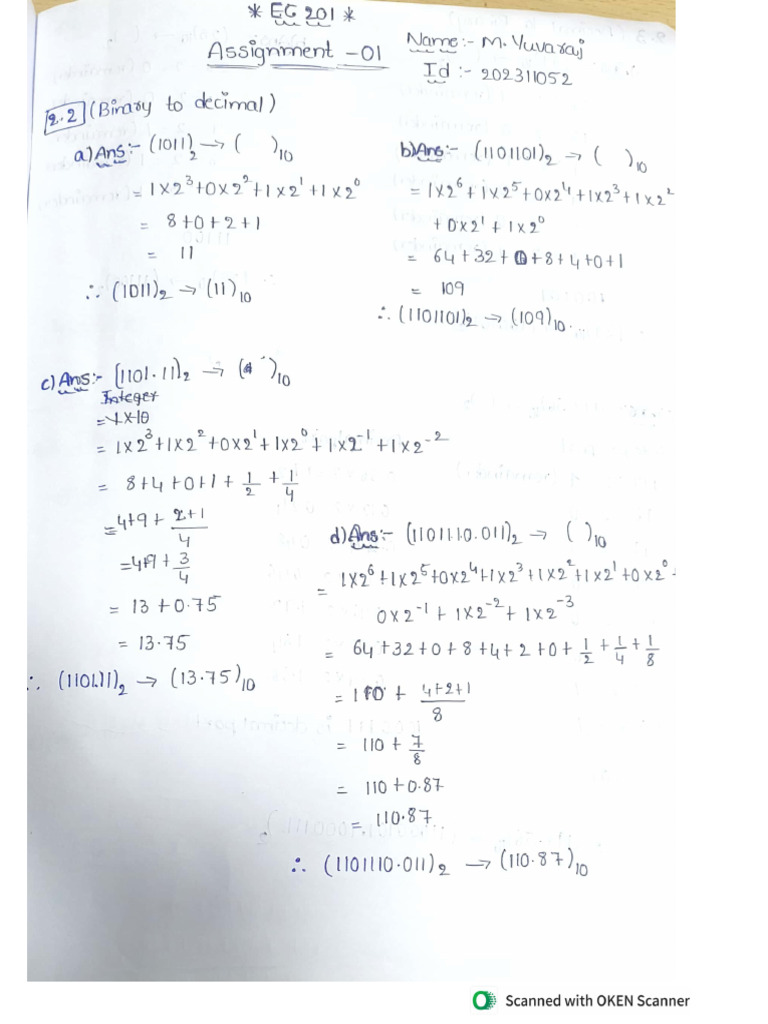 * EC 201 *
Assignment -01
Name:- M. Yuvaraj
Id :- 202311052
2.2 (Binary to decimal)
a) Ans:- (1011)₂ → ( )₁₀
= 1×2³+0×2²+1×2¹+1×2⁰
= 8+0+2+1
= 11
∴ (1011)₂ → (11)₁₀
b) Ans:- (1101101)₂ → ( )₁₀
= 1×2⁶+1×2⁵+0×2⁴+1×2³+1×2²
+0×2¹+1×2⁰
= 64+32+0+8+4+0+1
= 109
∴ (1101101)₂ → (109)₁₀.
c) Ans:- (1101.11)₂ → ( )₁₀
Integer
= 1×10
= 1×2³+1×2²+0×2¹+1×2⁰+1×2⁻¹+1×2⁻²
= 8+4+0+1+1/2+1/4
= 4+9+(2+1)/4
= 4+9+3/4
= 13+0.75
= 13.75
∴ (1101.11)₂ → (13.75)₁₀
d) Ans:- (1101110.011)₂ → ( )₁₀
= 1×2⁶+1×2⁵+0×2⁴+1×2³+1×2²+1×2¹+0×2⁰+
0×2⁻¹+1×2⁻²+1×2⁻³
= 64+32+0+8+4+2+0+1/2+1/4+1/8
= 110+(4+2+1)/8
= 110+7/8
= 110+0.87
= 110.87.
∴ (1101110.011)₂ → (110.87)₁₀
Scanned with OKEN Scanner